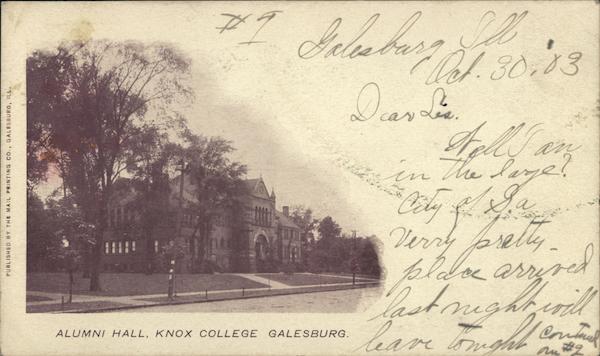 #9
Galesburg Ill
Oct. 30, 03
Dear Sis.
Well I am
in the large?
City of Ga
Verry pretty
place arrived
last night will
leave tonight
Continued
on #2
PUBLISHED BY THE MAIL PRINTING CO., GALESBURG, ILL.
ALUMNI HALL, KNOX COLLEGE GALESBURG.